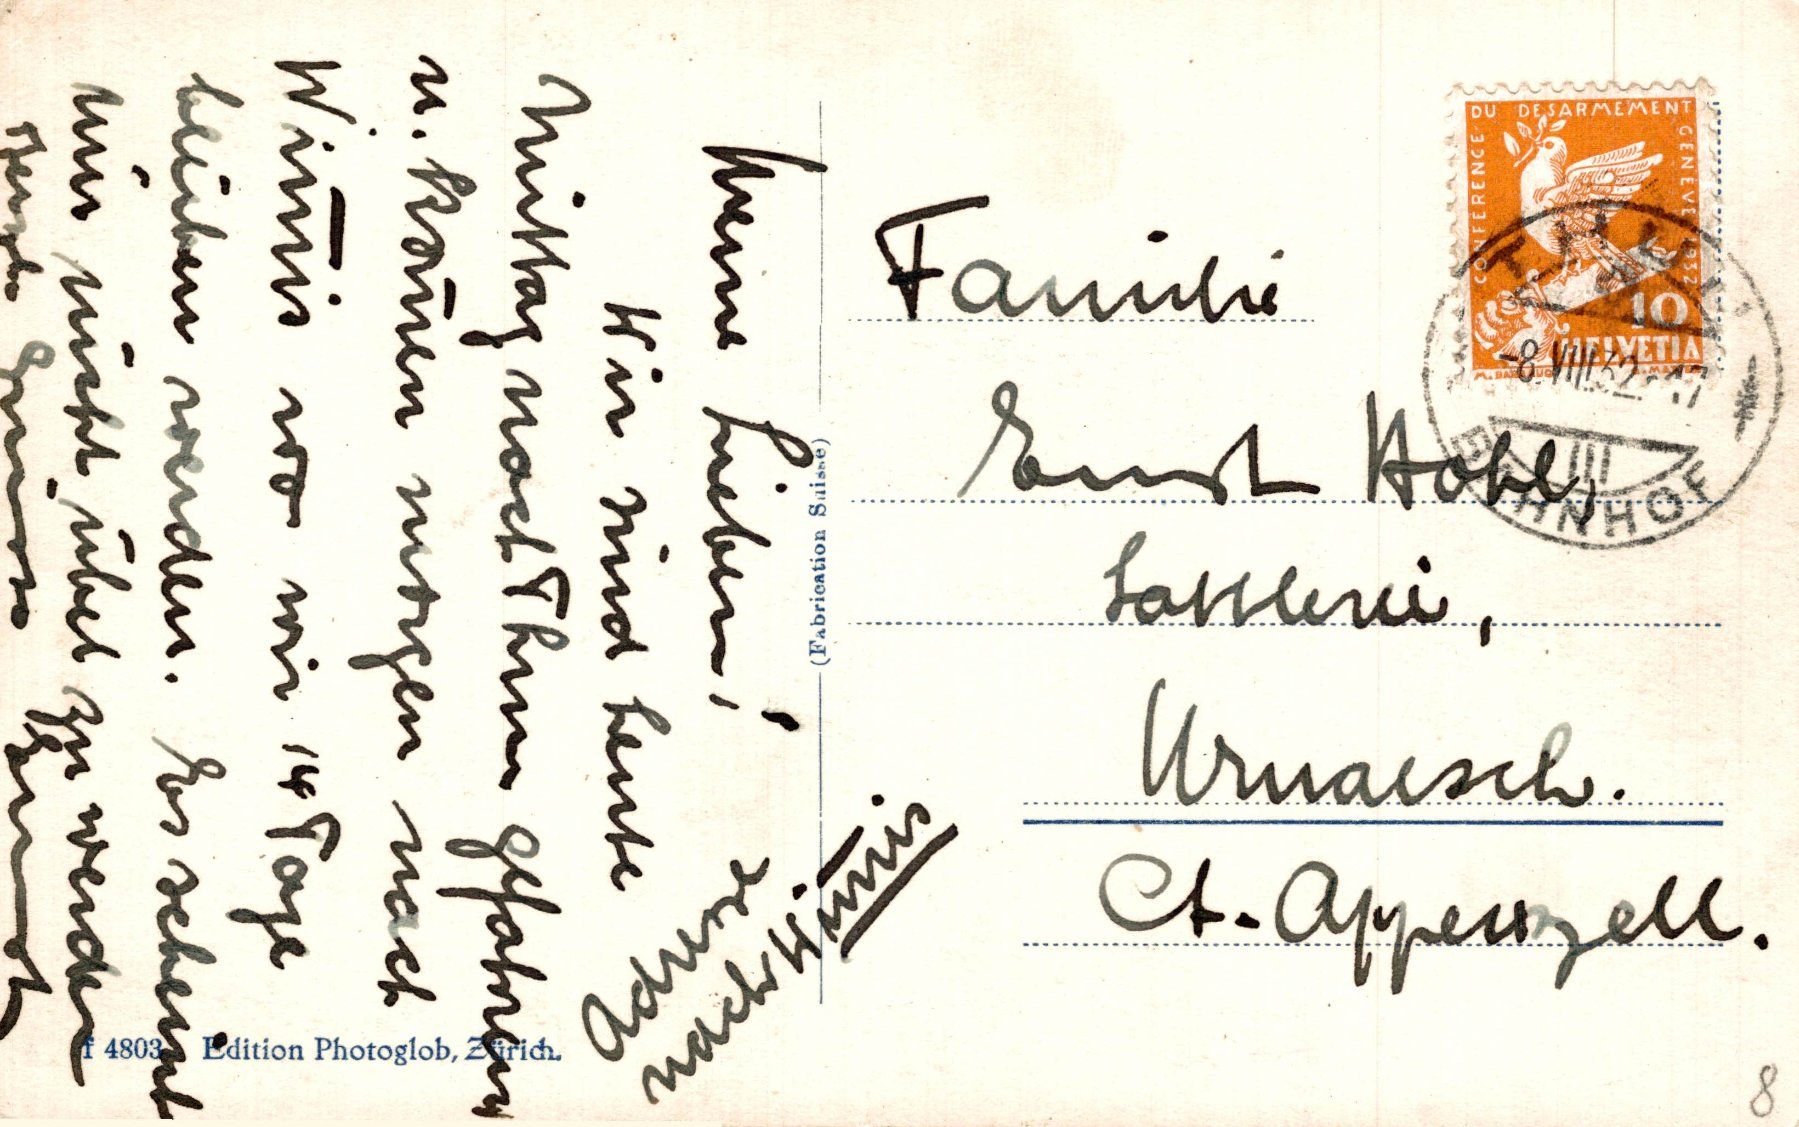 Meine Lieben!
Wir sind heute
Mittag nach Thun gefahren
u. kommen morgen nach
Wimmis wo wir 14 Tage
bleiben werden. Es scheint
mir nicht übel zu werden
Ernst
Adresse
nach Wimmis
(Fabrication Suisse)
f 4803 Edition Photoglob, Zürich.
CONFERENCE DU DESARMEMENT GENEVE 1932
10
HELVETIA
THUN 1
-8.VIII.32.-17
III
BAHNHOF
Familie
Ernst Hohl,
Sattlerei,
Urnaesch.
Ct. Appenzell.
8